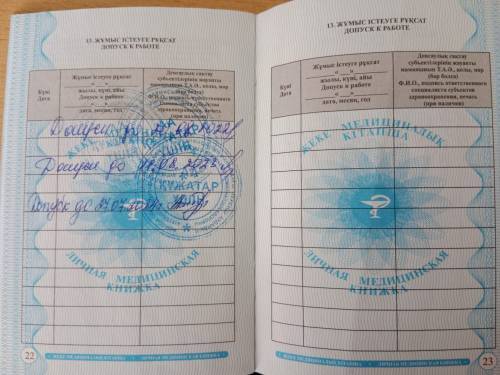 13. ЖҰМЫС ІСТЕУГЕ РҰҚСАТ
ДОПУСК К РАБОТЕ
Күні
Дата
Жұмыс істеуге рұқсат
"__"
жылы, күні, айы
Допуск к работе
"__"
дата, месяц, год
Денсаулық сақтау
субъектілерінің жауапты
маманының Т.А.Ә., қолы, мөр
(бар болса)
Ф.И.О., подпись ответственного
специалиста субъектов
здравоохранения, печать
(при наличии)
Допуск до
Допуск до
Допуск до
ҚҰЖАТАР
ЖЕКЕ МЕДИЦИНАЛЫҚ
КІТАПША
ЛИЧНАЯ МЕДИЦИНСКАЯ
КНИЖКА
22
13. ЖҰМЫС ІСТЕУГЕ РҰҚСАТ
ДОПУСК К РАБОТЕ
Күні
Дата
Жұмыс істеуге рұқсат
"__"
жылы, күні, айы
Допуск к работе
"__"
дата, месяц, год
Денсаулық сақтау
субъектілерінің жауапты
маманының Т.А.Ә., қолы, мөр
(бар болса)
Ф.И.О., подпись ответственного
специалиста субъектов
здравоохранения, печать
(при наличии)
ЖЕКЕ МЕДИЦИНАЛЫҚ
КІТАПША
ЛИЧНАЯ МЕДИЦИНСКАЯ
КНИЖКА
23